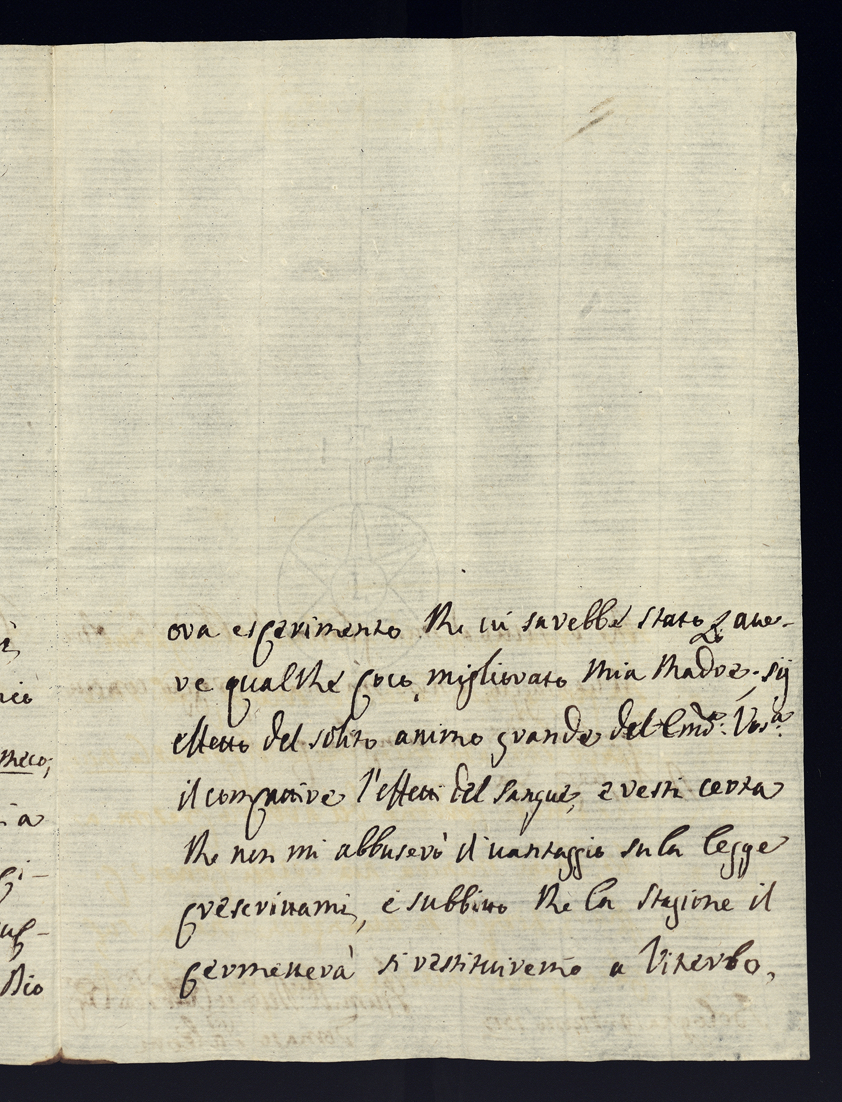 ova esperimento che vi sarebbe stato p ave-
re qualche poco migliorato mia Madre; sij
effetto del solito animo grande del Em.ª Vos.ª
il compatire l'effetti del sangue, e resti certa
che non mi abbuserò d'vantaggio su la legge
prescrittami, e subbitto che la stagione il
permetterà si restituiremo a Viterbo,
meco;
ia
Dio